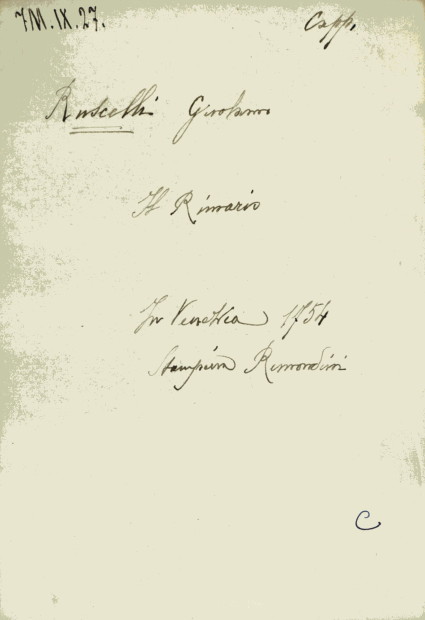 7M.IX.27.
Capp.
Ruscelli Girolamo
Il Rimario
In Venetia 1754
Stamperia Remondini
C